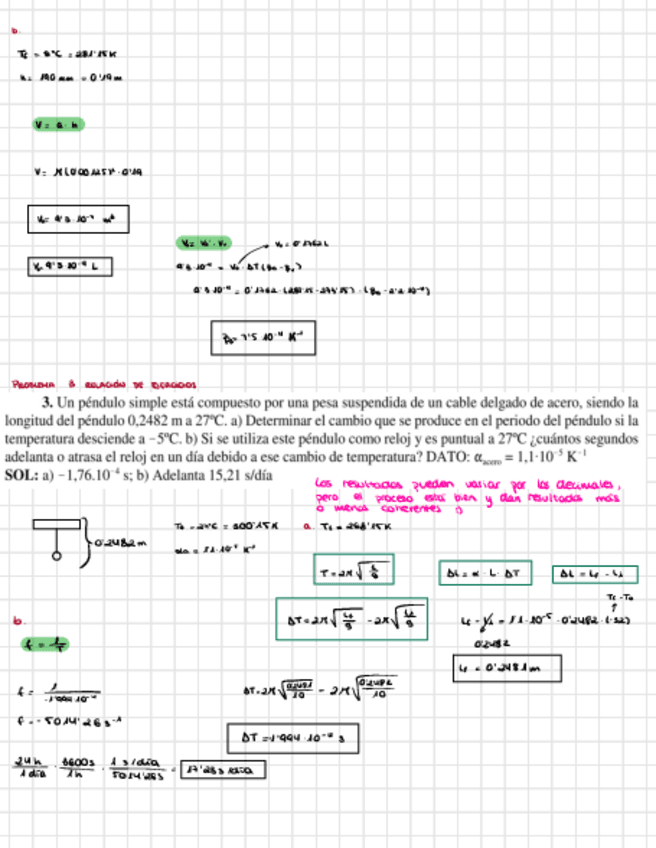 b.
T_f = 8ºC = 281'15K
h = 190 mm = 0'19m
V = a · h
V = π(0'00125)² · 0'19
V = 9'3·10⁻⁷ m³
V = 9'3·10⁻⁴ L
V_0 = 0'1762 L
PROBLEMA 3 RELACIÓN DE EJERCICIOS
3. Un péndulo simple está compuesto por una pesa suspendida de un cable delgado de acero, siendo la
longitud del péndulo 0,2482 m a 27ºC. a) Determinar el cambio que se produce en el periodo del péndulo si la
temperatura desciende a −5ºC. b) Si se utiliza este péndulo como reloj y es puntual a 27ºC ¿cuántos segundos
adelanta o atrasa el reloj en un día debido a ese cambio de temperatura? DATO: α_acero = 1,1·10⁻⁵ K⁻¹
SOL: a) −1,76.10⁻⁴ s; b) Adelanta 15,21 s/día
Los resultados pueden variar por los decimales,
pero el proceso está bien y dan resultados más
o menos coherentes :)
T_0 = 27ºC = 300'15K a. T_f = 268'15K
0'2482m
T = 2π√(L/g) ΔL = α · L · ΔT ΔL = L_f - L_i
T_f - T_0
ΔT = 2π√(L_f/g) - 2π√(L_i/g) L_f - L_i = 1'1·10⁻⁵ · 0'2482 · (-32)
0'2482
L_f = 0'2481m
b.
f = 1/T
ΔT = 2π√(0'2481/10) - 2π√(0'2482/10)
f = -5014'26 s⁻¹
ΔT = -1'994·10⁻⁴ s
24h/1día · 3600s/1h · 1 s/día/5014'26s = 17'23 s/día